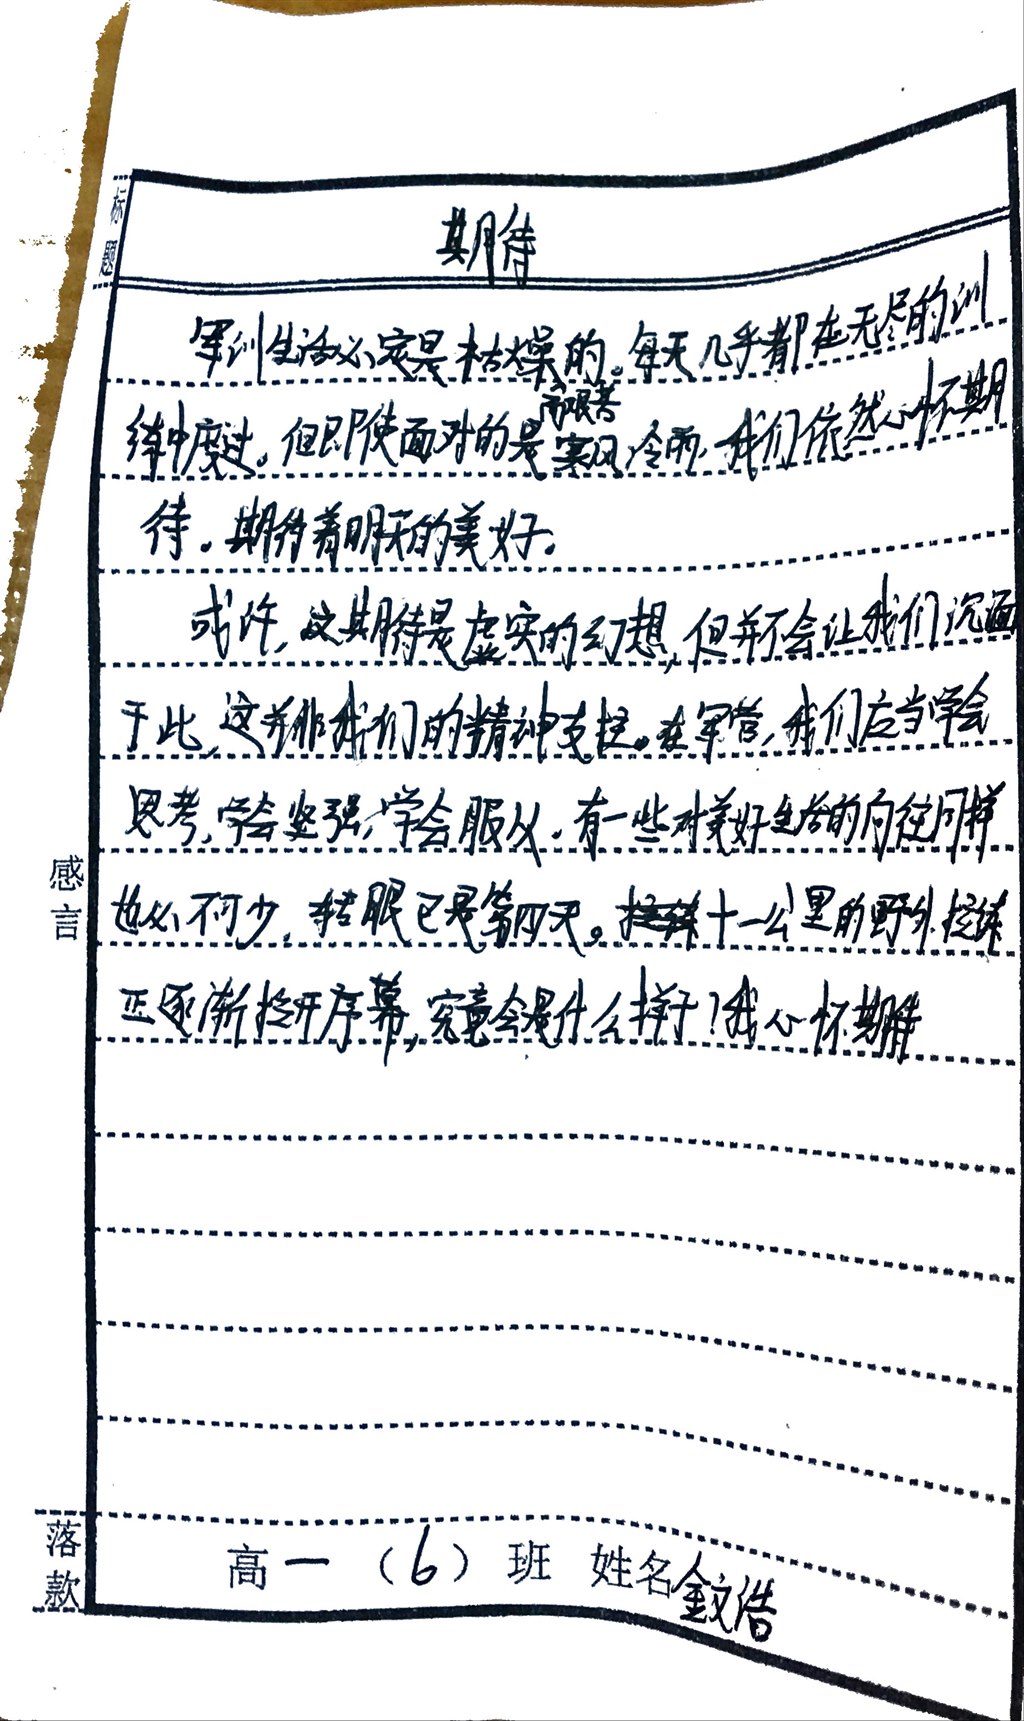 标题
期待
军训生活必定是枯燥的。每天几乎都在无尽的训
练中度过。但即使面对的是寒风冷雨，我们依然心怀期
待。期待着明天的美好。
或许，这期待是虚实的幻想，但并不会让我们沉湎
于此，这并非我们的精神支柱。在军营，我们应当学会
思考，学会坚强，学会服从。有一些对美好生活的向往同样
必不可少，转眼已是第四天。十一公里的野外拉练
正逐渐拉开序幕，究竟会是什么样子？我心怀期待
感言
落款
高一（6）班 姓名金文浩